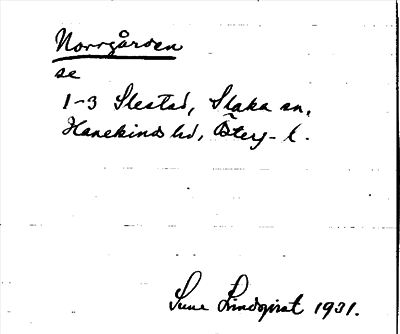 Norrgården
se
1-3 Slestad, Slaka sn,
Hanekinds hd, Österg. l.
Sune Lindqvist 1931.